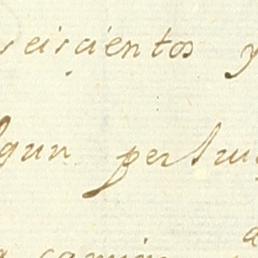 seiscientos y
algun perjui
camin